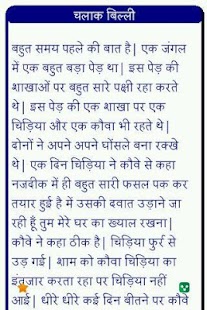 चलाक बिल्ली
बहुत समय पहले की बात है| एक जंगल
में एक बहुत बड़ा पेड़ था| इस पेड़ की
शाखाओं पर बहुत सारे पक्षी रहा करते
थे| इस पेड़ की एक शाखा पर एक
चिड़िया और एक कौवा भी रहते थे|
दोनों ने अपने अपने घोंसले बना रक्खे
थे| एक दिन चिड़िया ने कौवे से कहा
नजदीक में ही बहुत सारी फसल पक कर
तयार हुई है में उसकी दवात उड़ाने जा
रही हूँ तुम मेरे घर का ख्याल रखना|
कौवे ने कहा ठीक है| चिड़िया फुर्र से
उड़ गई| शाम को कौवा चिड़िया का
इंतजार करता रहा पर चिड़िया नहीं
आई| धीरे धीरे कई दिन बीतने पर कौवे